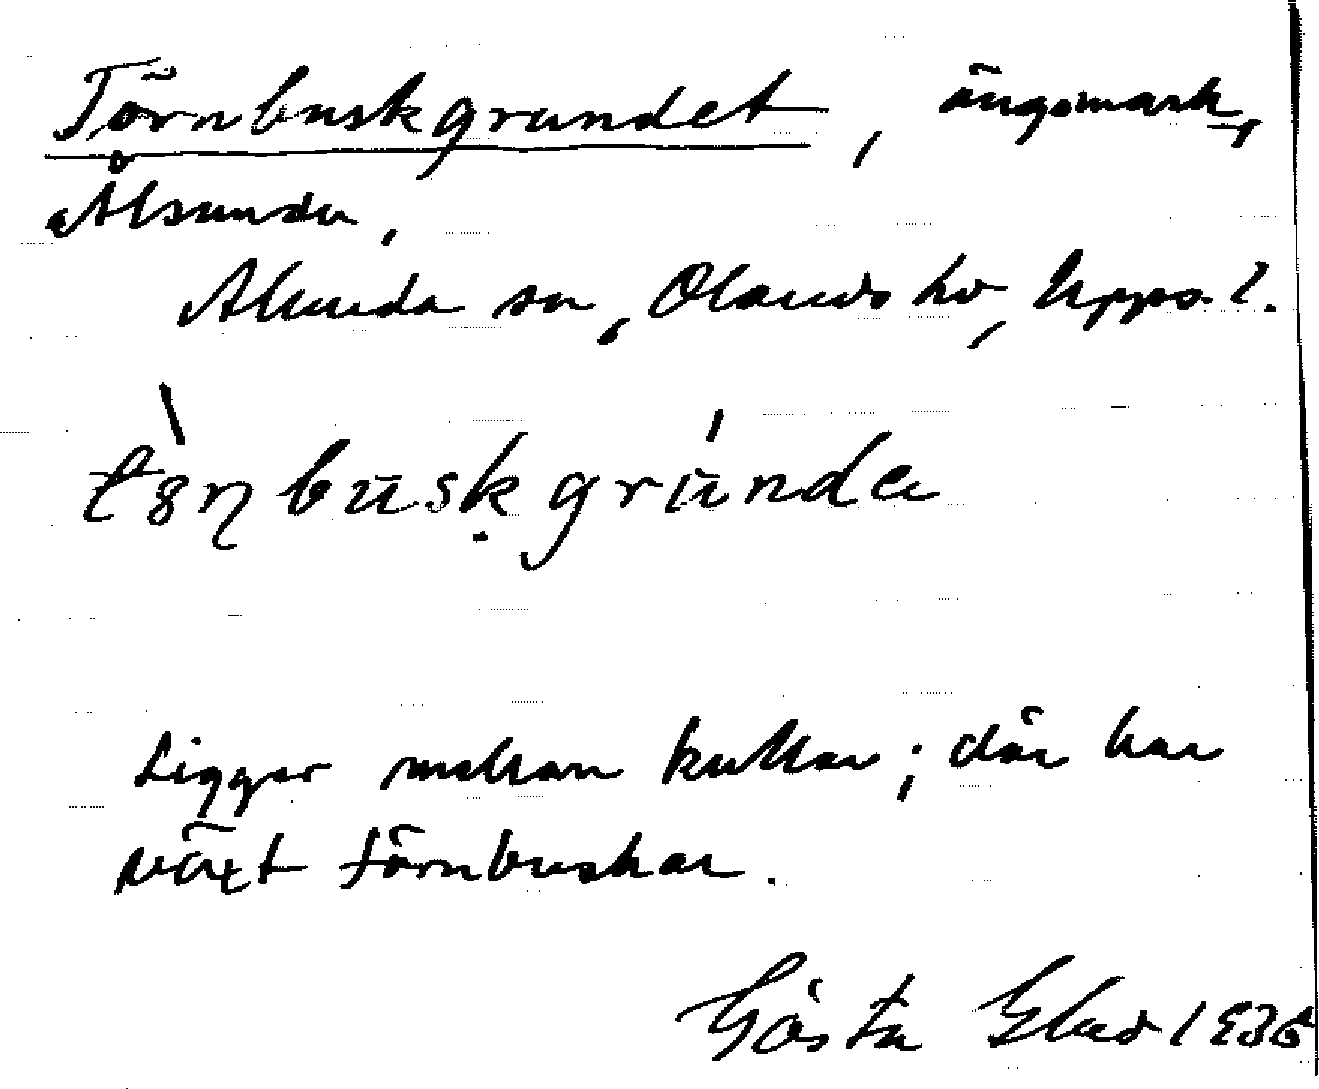 Törnbuskgrundet, ängsmark,
Ålsunda,
Alunda sn, Olands hd, Upps. l.
Ligger mellan kullar; där har
växt törnbuskar.
Gösta